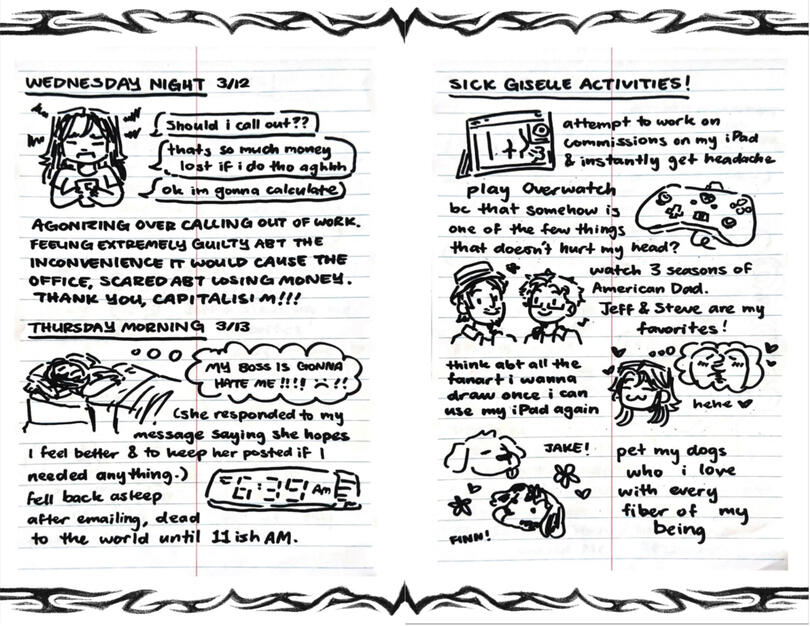 WEDNESDAY NIGHT 3/12
Should i call out??
thats so much money
lost if i do tho aghhh
ok im gonna calculate
AGONIZING OVER CALLING OUT OF WORK.
FEELING EXTREMELY GUILTY ABT THE
INCONVENIENCE IT WOULD CAUSE THE
OFFICE, SCARED ABT LOSING MONEY.
THANK YOU, CAPITALISM!!!
THURSDAY MORNING 3/13
MY BOSS IS GONNA
HATE ME !!!! :(!!
(she responded to my
message saying she hopes
I feel better & to keep her posted if I
needed anything.)
6:35 AM
fell back asleep
after emailing, dead
to the world until 11ish AM.
SICK GISELLE ACTIVITIES!
attempt to work on
commissions on my iPad
& instantly get headache
play Overwatch
bc that somehow is
one of the few things
that doesn't hurt my head?
watch 3 seasons of
American Dad.
Jeff & Steve are my
favorites!
think abt all the
fanart i wanna
draw once i can
use my iPad again
hehe
JAKE!
FINN!
pet my dogs
who i love
with every
fiber of my
being